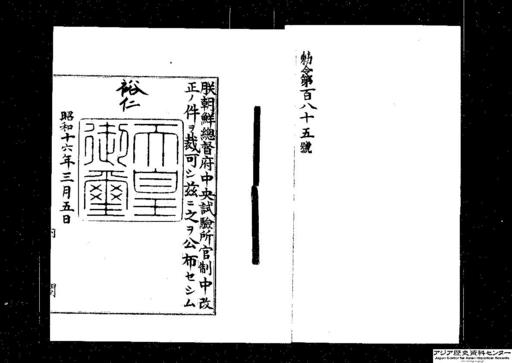 勅令第百八十五號
朕朝鮮總督府中央試驗所官制中改
正ノ件ヲ裁可シ茲ニ之ヲ公布セシム
裕仁
天皇
御璽
昭和十六年三月五日
内閣
アジア歴史資料センター
Japan Center for Asian Historical Records